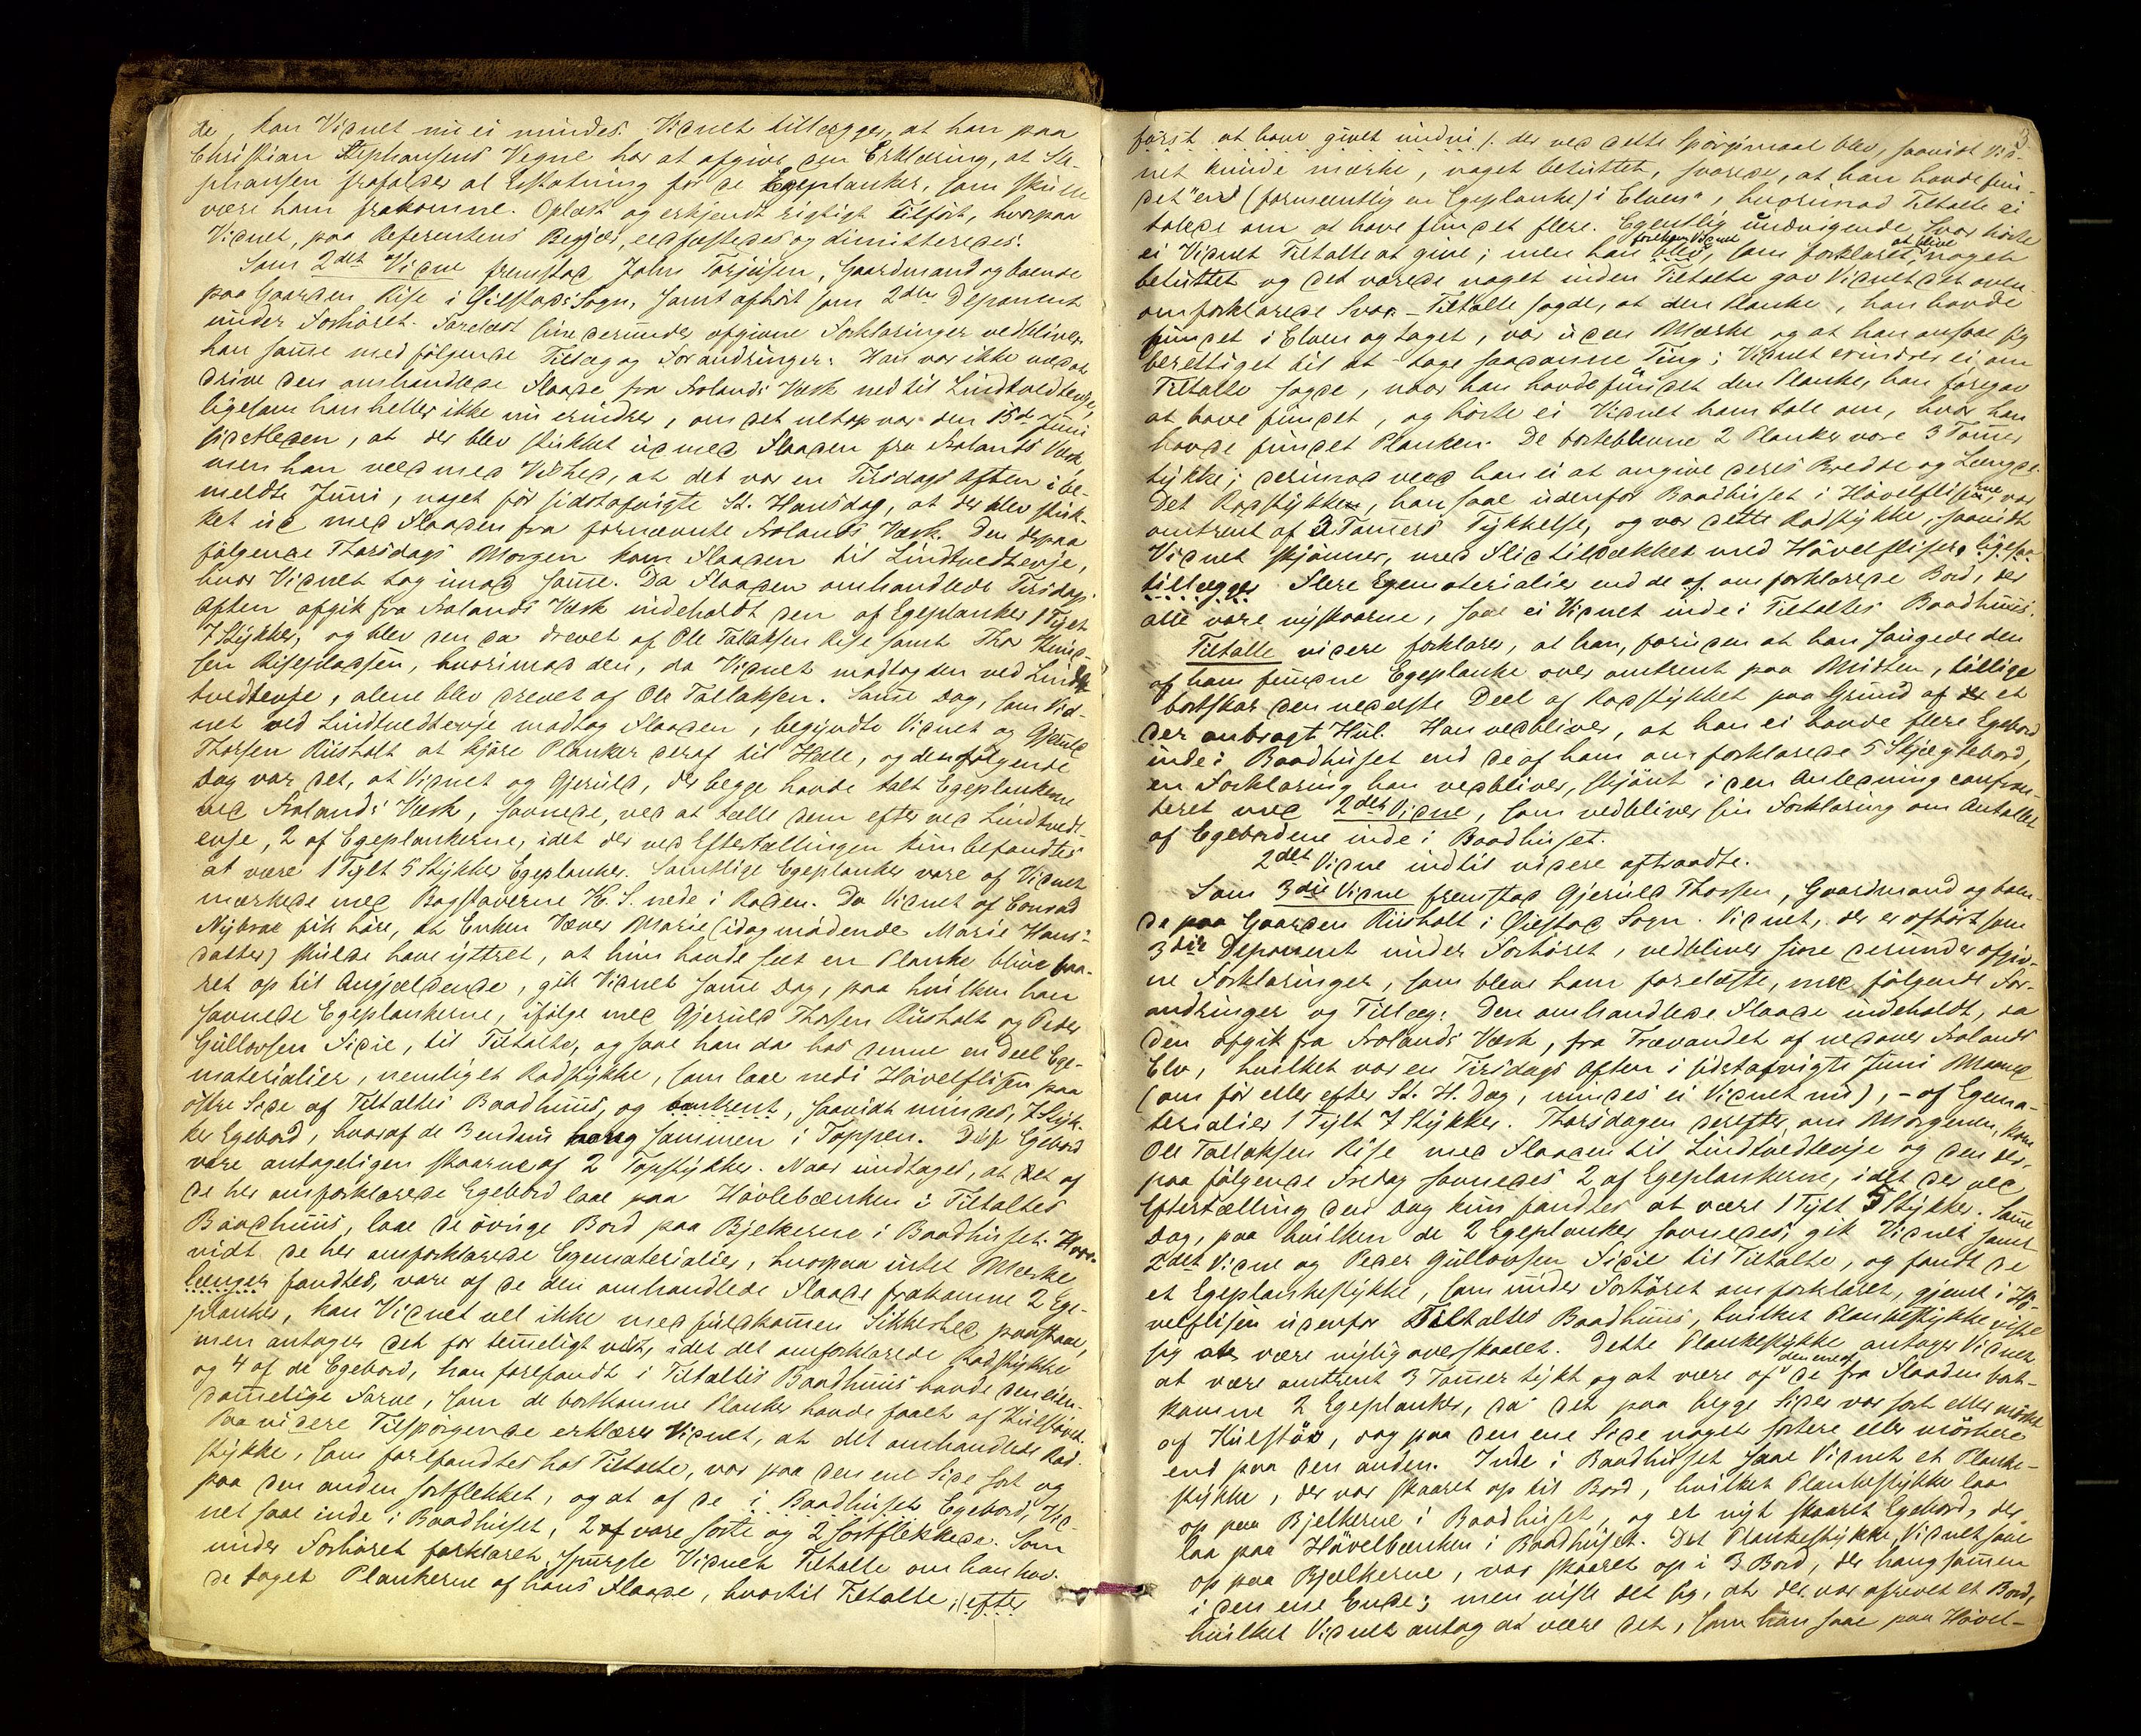 de, kan Vidnet nu ei mindes. Vidnet tillægger, at han paa
Christian Stephansens Vegne har at afgive den Erklæring, at Ste-
phansen frafalder al Erstatning for de Egeplanker, som skulle
være ham frakomne. Oplæst og erkjendt rigtigt tilført, hvorpaa
Vidnet, paa Referentens Begjær, eedfæstedes og dimitteredes.
Som 2det Vidne fremstod John Torjusen, Gaardmand og boende
paa Gaarden Rise i Øiestads Sogn, samt afhørt som 2den Deponent
under Forhøret. Forelæst sine derunder afgivne Forklaringer vedbliver
han samme med følgende Tillæg og Forandringer: Han var ikke med at
drive den omhandlede Flaade fra Frolands Værk ned til Lindtvedtevje,
ligesom han heller ikke nu erindrer, om det netop var den 15de Juni
sidstleden, at der blev stukket ud med Flaaden fra Frolands Værk,
men han veed med Vished, at det var en Tirsdags Aften i be-
meldte Juni, noget før sidstafvigte St. Hansdag, at der blev stuk-
ket ud med Flaaden fra fornævnte Frolands Værk. Den derpaa
følgende Thorsdags Morgen kom Flaaden til Lindtvedtevje,
hvor Vidnet tog imod samme. Da Flaaden omhandlede Tirsdags
Aften afgik fra Frolands Værk indeholdt den af Egeplanker 1 Tylt
7 Stykker, og blev den da drevet af Ole Tallaksen Rise samt Thor Knud-
sen Risepladsen, hvorimod den, da Vidnet modtog den ved Lindt-
tvedtevje, alene blev drevet af Ole Tallaksen. Samme Dag, som Vid-
net ved Lindtvedtevje modtog Flaaden, begyndte Vidnet og Gjeruld
Thorsen Riisholt at kjøre Planker deraf til Hølle, og den følgende
Dag var det, at Vidnet og Gjeruld, der begge havde talt Egeplankerne
ved Frolands Værk, savnede, ved at tælle dem efter ved Lindtvedt-
evje, 2 af Egeplankerne, idet der ved Eftertællingen kun befandtes
at være 1 Tylt 5 Stykker Egeplanker. Samtlige Egeplanker vare af Vidnet
mærkede med Bogstaverne H. S. nede i Roden. Da Vidnet af Conrad
Nybroe fik høre, at Enken Væver Marie (idag mødende Marie Hans-
datter) skulde have yttret, at hun havde seet en Planke blive baa-
ret op til Angjældende, gik Vidnet samme Dag, paa hvilken han
savnede Egeplankerne, ifølge med Gjeruld Thorsen Riisholt og Peder
Gullovsen Sidie, til Tiltalte, og saae han da hos denne en deel Ege-
materialier, nemlig et Rodstykke, som laae nedi Høvelflisen paa
østre Side af Tiltaltes Baadhuus, og omtrent, saavidt mindes, 7 Styk-
ker Egebord, hvoraf de 3 endnu hang sammen i Toppen. Disse Egebord
vare antageligen skaarne af 2 Topstykker. Naar undtages, at det ene af
de her omforklarede Egebord laae paa Høvlebænken i Tiltaltes
Baadhuus, laae de øvrige Bord paa Bjelkerne i Baadhuset. Hvor-
vidt de her omforklarede Egematerialier, hvorpaa intet Mærke
længer fandtes, vare af de den omhandlede Flaade frakomne 2 Ege-
planker, kan Vidnet vel ikke med fuldkommen Sikkerhed paastaae,
men antager det for temmeligt vist, idet det omforklarede Rodstykke
og 4 af de Egebord, han forefandt i Tiltaltes Baadhuus havde den eien-
dommelige Farve, som de bortkomne Planker havde faaet af Kulstøv.
Paa videre Tilspørgende erklærer Vidnet, at det omhandlede Rod-
stykke, som forefandtes hos Tiltalte, var paa den ene Side sort og
paa den anden sortflekket, og at af de i Baadhuset Egebord, Vid-
net saae inde i Baadhuset, 2 vare sorte og 2 sortflekkede. Som
under Forhøret forklaret, spurgte Vidnet Tiltalte om han hav-
de taget Plankerne af hans Flaade, hvortil Tiltalte, (efter
3.
først at have givet undvi /: der ved dette Spørgsmaal blev, saavidt Vid-
net kunde mærke, noget betuttet, svarede, at han havde fun-
det "en (formentlig en Egeplanke) i Elven", hvorimod Tiltalte ei
talede om at have fundet flere. Egentlig undvigende Svar hørte
ei Vidnet Tiltalte at give; men han blev, forekom Vidnet som forklaret, at blive noget
betuttet og det varede noget inden Tiltalte gav Vidnet det oven-
omforklarede Svar. – Tiltalte sagde, at den Planke, han havde
fundet i Elven og taget, var uden Mærke og at han ansaae sig
berettiget til at tage saadanne Ting; Vidnet erindrer ei om
Tiltalte sagde, naar han havde fundet den Planke, han foregav
at have fundet, og hørte ei Vidnet ham tale om, hvor han
havde fundet Planken. De bortblevne 2 Planker vare 3 Tommer
tykke; derimod veed han ei at angive deres Bredde og Længde.
Det Rodstykke, han saae udenfor Baadhuset i Høvelfliserne, var
omtrent af 3 Tommers Tykkelse, og var dette Rodstykke, saavidt
Vidnet skjønner, med Flid tildækket med Høvelfliser. ligesaa
tillægger Flere Egematerialier end de af omforklarede Bord, der
alle vare nyskaarne, saae ei Vidnet inde i Tiltaltes Baadhuus.
Tiltalte videre forklarer, at han, foruden at han saugede den
af ham fundne Egeplanke over omtrent paa Midten, tillige
bortskar den nederste Deel af Rodstykket paa Grund af et
der anbragt Hul. Han vedbliver, at han ei havde flere Egebord
inde i Baadhuset end de af ham omforklarede 5 Skjægtebord,
en Forklaring han vedbliver, skjønt i den Anledning confron-
teret med 2det Vidne, som vedbliver sin Forklaring om Antallet
af Egebordene inde i Baadhuset.
2det Vidne indtil videre aftraadte.
Som 3die Vidne fremstod Gjeruld Thorsen, Gaardmand og boen-
de paa Gaarden Riisholt i Øiestad Sogn. Vidnet, der er afhørt som
3die Deponent under Forhøret, vedbliver sine derunder afgiv-
ne Forklaringer, som bleve ham forelæste, med følgende For-
andringer og Tillæg: Den omhandlede Flaade indeholdt, da
den afgik fra Frolands Værk, fra Trævandet af nedover Frolands
Elv, hvilket var en Tirsdags Aften i sidstafvigte Juni Maaned
(om før eller efter St. H. Dag, mindes ei Vidnet nu), – af Egema-
terialier 1 Tylt 7 Stykker. Thorsdagen derefter, om Morgenen, kom
Ole Tallaksen Rise med Flaaden til Lindtvedtevje og den der-
paa følgende Fredag savnedes 2 af Egeplankerne, idet der ved
Eftertælling den Dag kun fandtes at være 1 Tylt 5 Stykker. Samme
Dag, paa hvilken de 2 Egeplanker savnedes, gik Vidnet samt
2det Vidne og Peder Gullovsen Sidie til Tiltalte, og fandt de
et Egeplankestykke, som under Forhøret omforklaret, gjemt i Hø-
velflisen udenfor Tiltaltes Baadhuus, hvilket Plankestykke viste
sig at være nylig overskaaret. Dette Plankestykke antager Vidnet
at være omtrent 3 Tommer tykt og at være af den ene af de fra Flaaden bort-
komne 2 Egeplanker, da det paa begge Sider var sort eller mørkt
af Kulstøv, dog paa den ene Side noget sortere eller mørkere
end paa den anden. Inde i Baadhuset saae Vidnet et Planke-
stykke, der var skaaret op til Bord, hvilket Plankestykke laa
op paa Bjelkerne i Baadhuset, og et nyt skaaret Egebord, der
laa paa Høvelbænken i Baadhuset. Det Plankestykke, Vidnet saae
op paa Bjælkerne, var skaaret op i 3 Bord, der hang sammen
i den ene Ende; men viste det sig, at der var afrevet et Bord,
hvilket Vidnet antog at være det, som han saae paa Høvel-